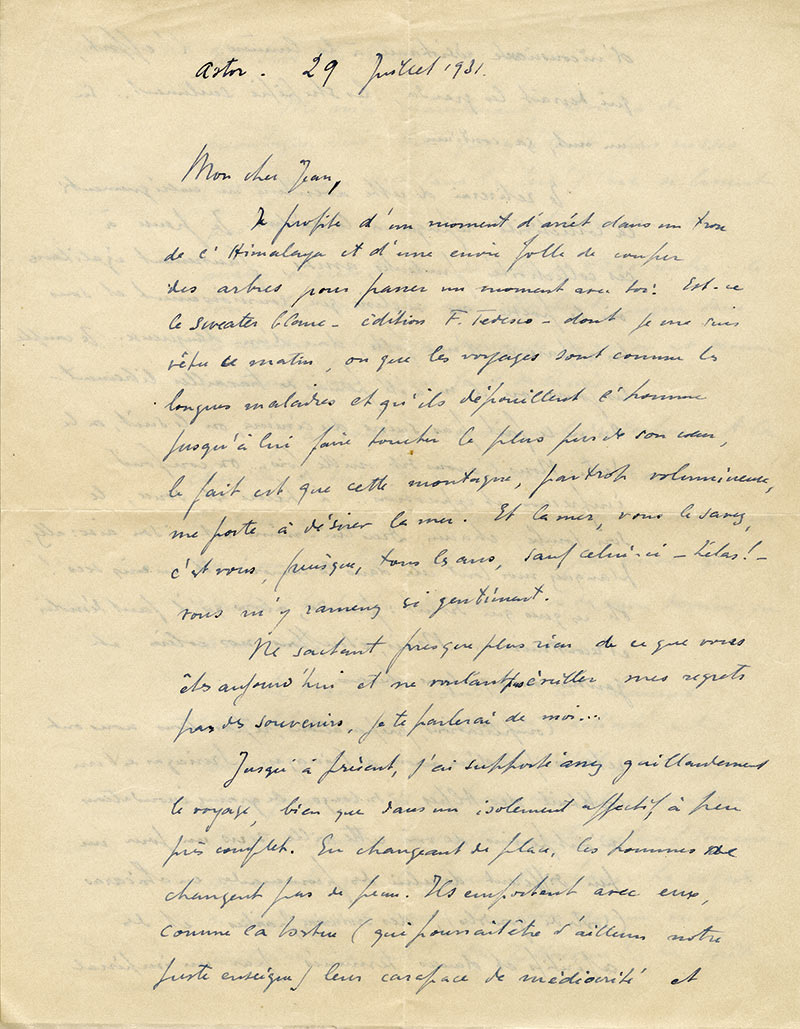 Astor. 29 Juillet 1931.
Mon cher Jean,
Je profite d'un moment d'arrêt dans un trou
de l'Himalaya et d'une envie folle de couper
des arbres pour passer un moment avec toi. Est-ce
le sweater blanc - édition F. Tedesco - dont je me suis
vêtu ce matin, ou que les voyages sont comme les
longues maladies et qu'ils dépouillent l'homme
jusqu'à lui faire toucher le plus pur de son cœur,
le fait est que cette montagne, par trop volumineuse,
me porte à désirer la mer. Et la mer, vous le savez,
c'est vous, puisque, tous les ans, sauf celui-ci - hélas! -
vous m'y ramenez si gentiment.
Ne sachant presque plus rien de ce que vous
êtes aujourd'hui et ne voulant pas éveiller mes regrets
par des souvenirs, je te parlerai de moi...
Jusqu'à présent, j'ai supporté assez gaillardement
le voyage, bien que dans un isolement affectif, à peu
près complet. En changeant de place, les hommes ne
changent pas de peau. Ils emportent avec eux,
comme la tortue (qui pourrait être d'ailleurs notre
juste enseigne) leur carapace de médiocrité et